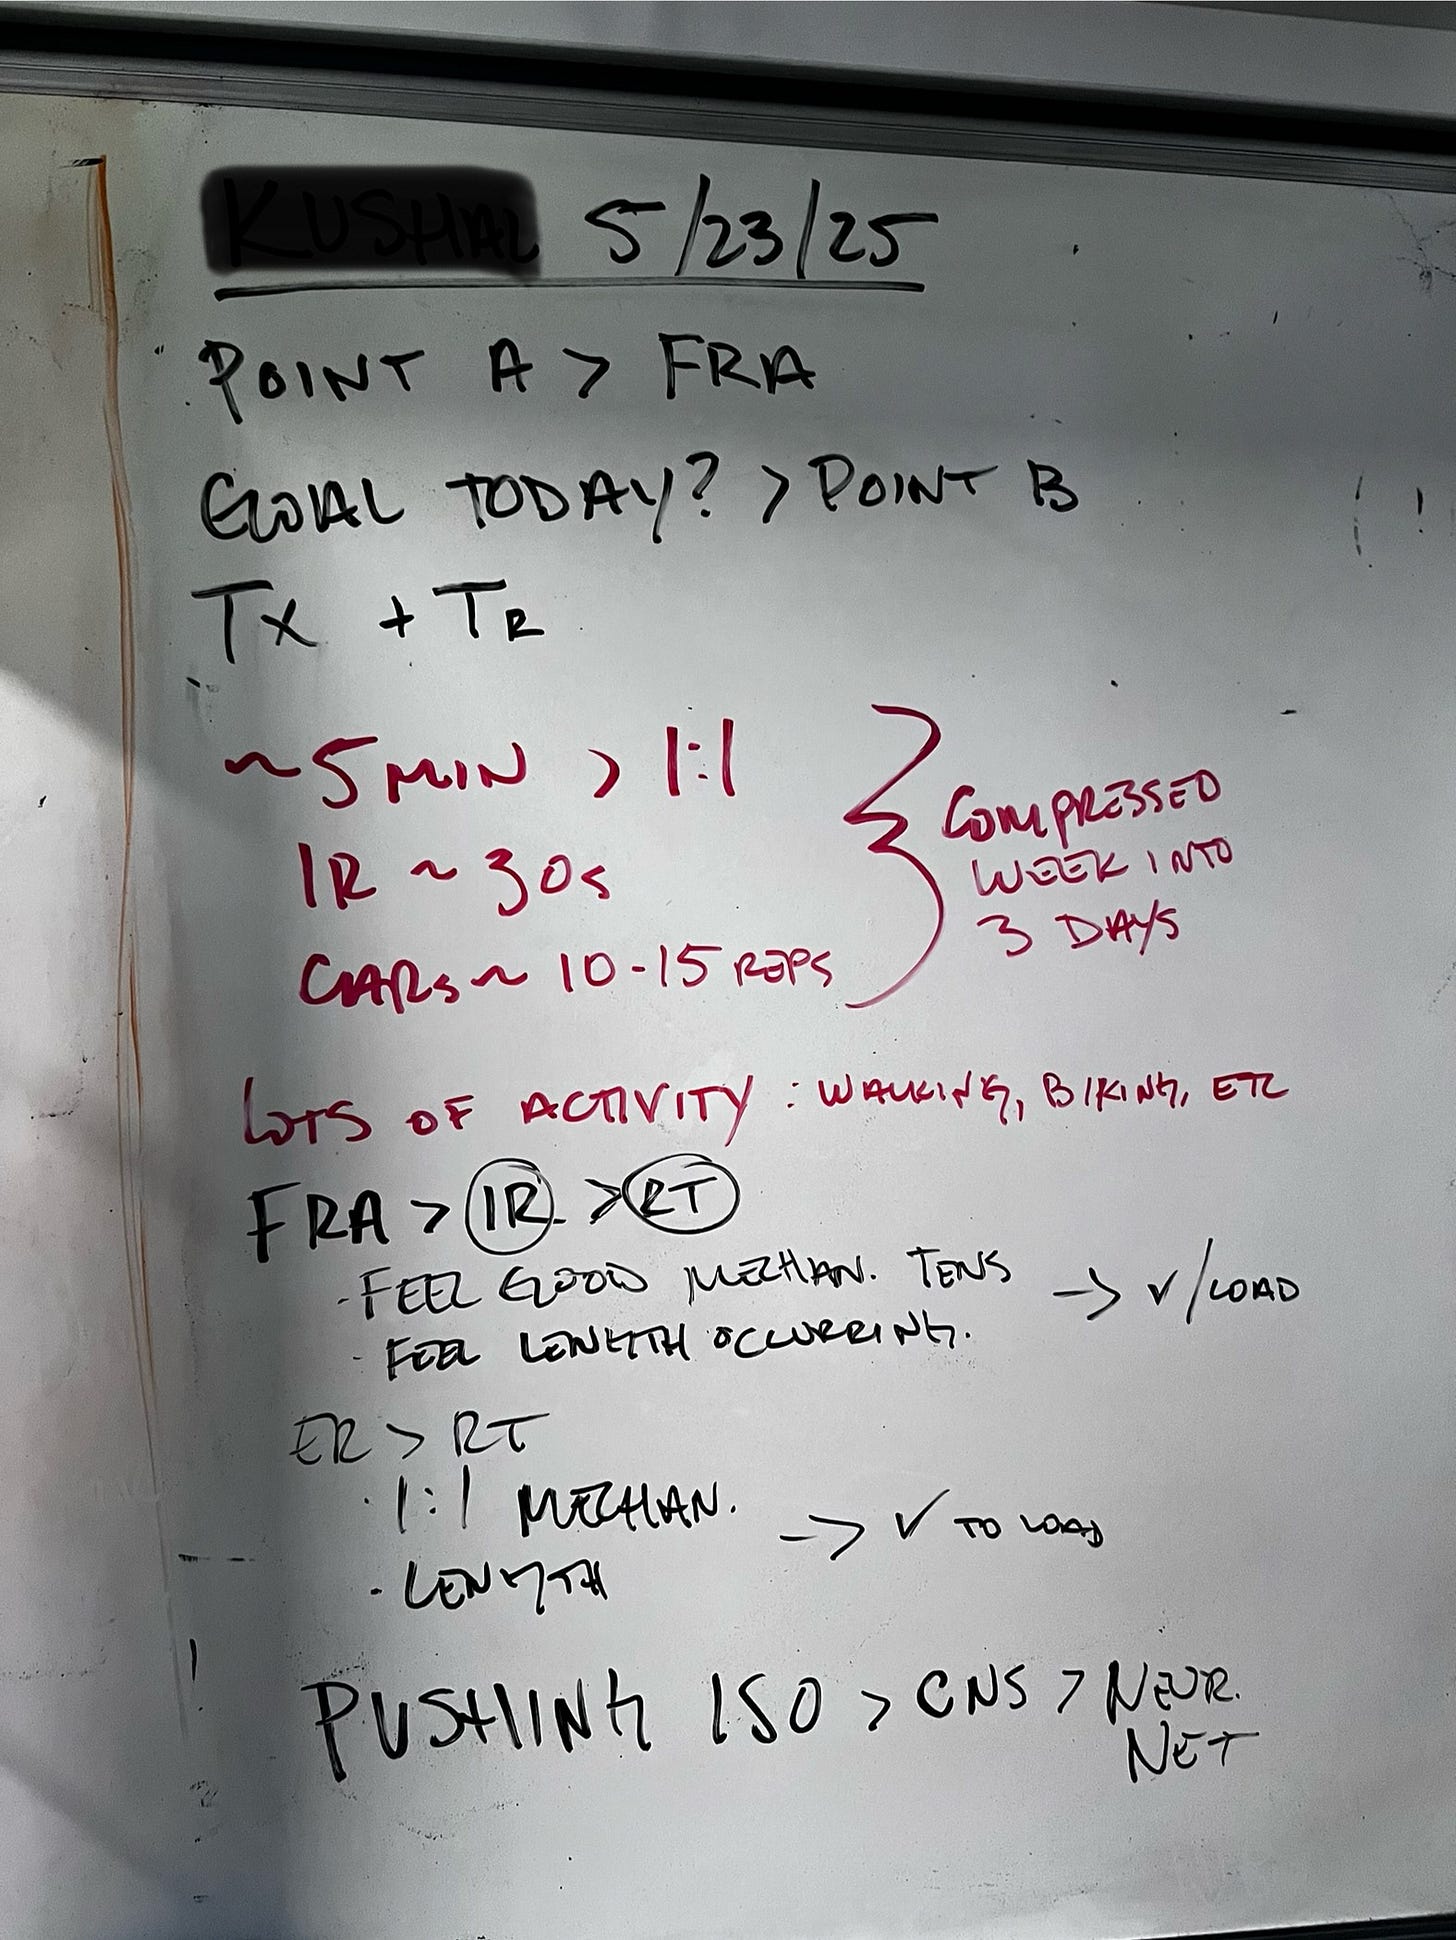 5/23/25
POINT A > FRA
GOAL TODAY? > POINT B
TX + TR
~5 MIN > 1:1
IR ~ 30s
CARs ~ 10-15 REPS
COMPRESSED
WEEK INTO
3 DAYS
LOTS OF ACTIVITY : WALKING, BIKING, ETC
FRA > IR > RT
· FEEL GOOD MECHAN. TENS → ✓/LOAD
· FEEL LENGTH OCCURRING.
ER > RT
· 1:1 MECHAN. → ✓ TO LOAD
· LENGTH
PUSHING ISO > CNS > NEUR.
NET